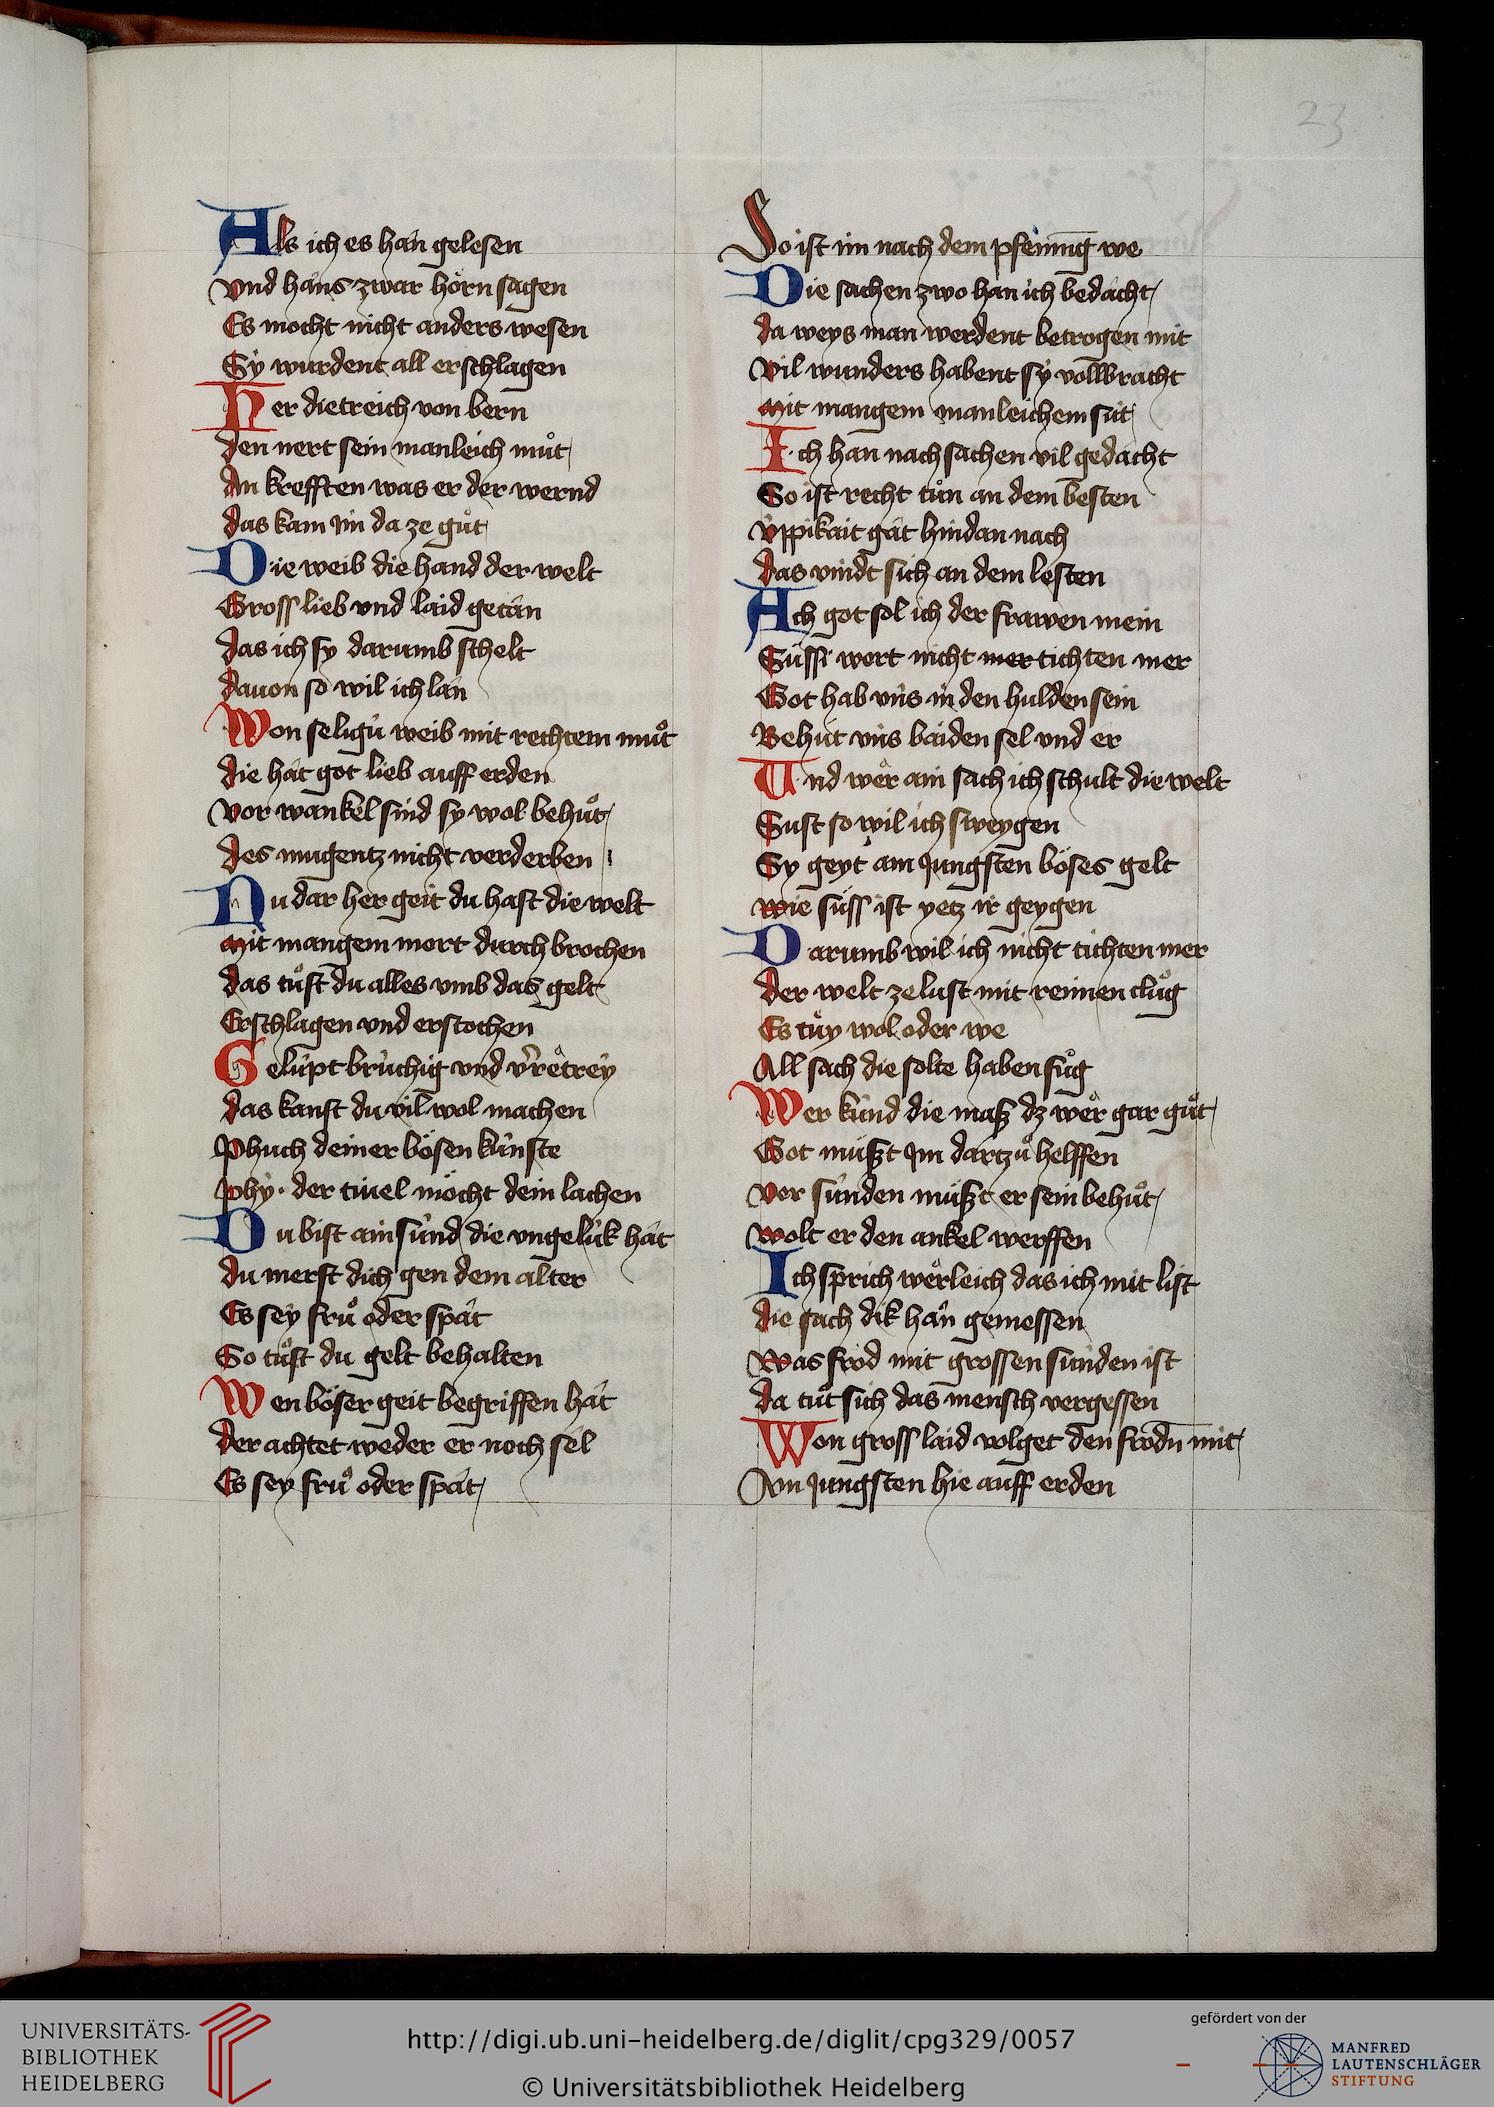 23
Als ich es hân gelesen
vnd hâns zwar hôrn sagen
Es mocht nicht anders wesen
Sÿ wurdent all erschlagen
Her dietreich von bern
den nert sein manleich můt
An krefften was er der wernd
das kam im da ze gůt
Die weib die hand der welt
Gross lieb vnd laid getân
das ich sy darumb schelt
dauon so wil ich lân
Won seligú weib mit rechtem můt
die hât got lieb auff erden
vor wankel sind sy wol behůt
des mugentz nicht verderben
Nu dar her geit du hast die welt
mit mangem mort durch brochen
das tůst du alles vmb das gelt
Erschlagen vnd erstochen
Gelúpt brúchig vnd v̄rêtrey
das kanst du vil wol machen
Phuch deiner bösen kúnste
phÿ der tiuel môcht dein lachen
Du bist ain súnd die vngelúk hât
du merst dich gen dem alter
Es seÿ frů oder spât
So tůst du gelt behalten
Wen böser geit begriffen hât
der achtet weder er noch sel
Es sey frů oder spât
So ist im nach dem pfenning we
Die sachen zwo han ich bedâcht
da weys man werdent betrogen mit
Vil wunders habent sÿ vollbracht
mit mangem manleichem sit
Ich hân nach sachen vil gedâcht
So ist recht tůn an dem besten
v́ppikait gât hindan nach
das vindt sich an dem lesten
Ach got sol ich der frawen mein
Sússi wort nicht mer tichten mer
Got hab vns in den hulden sein
Behút vns baiden sel vnd er
Und wêr ain sach ich schult die welt
Sust so wil ich sweygen
Sy geyt am jungsten böses gelt
wie súss ist yetz ir geygen
Darumb wil ich nicht tichten mer
der welt ze lust mit reimen clůg
Es tůy wol oder we
All sach die solte haben fůg
Wer kúnd die mass dz wêr gar gůt
Got músst im dartzů helffen
vor súnden músst er sein behůt
wolt er den ankel werffen
Ich sprich wêrleich das ich mit list
die sach dik hân gemessen
Was frôd mit grossen súnden ist
da tůt sich das mensch vergessen
Won gross laid volget den frôdn mit
Am jungsten hie auff erden
UNIVERSITÄTS-
BIBLIOTHEK
HEIDELBERG
http://digi.ub.uni-heidelberg.de/diglit/cpg329/0057
© Universitätsbibliothek Heidelberg
gefördert von der
MANFRED
LAUTENSCHLÄGER
STIFTUNG